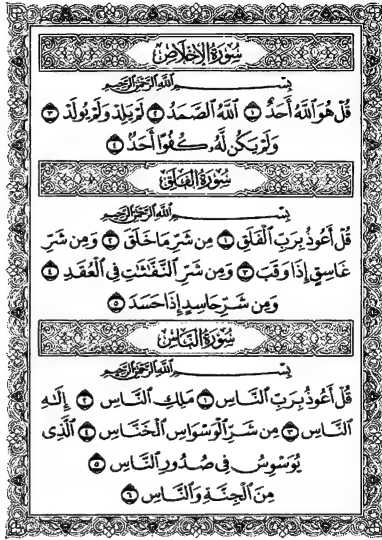 سُورَةُ الإِخْلَاصِ
بِسْمِ ٱللَّهِ ٱلرَّحْمَٰنِ ٱلرَّحِيمِ
قُلْ هُوَ ٱللَّهُ أَحَدٌ ١ ٱللَّهُ ٱلصَّمَدُ ٢ لَمْ يَلِدْ وَلَمْ يُولَدْ ٣
وَلَمْ يَكُن لَّهُۥ كُفُوًا أَحَدٌۢ ٤
سُورَةُ الفَلَقِ
بِسْمِ ٱللَّهِ ٱلرَّحْمَٰنِ ٱلرَّحِيمِ
قُلْ أَعُوذُ بِرَبِّ ٱلْفَلَقِ ١ مِن شَرِّ مَا خَلَقَ ٢ وَمِن شَرِّ
غَاسِقٍ إِذَا وَقَبَ ٣ وَمِن شَرِّ ٱلنَّفَّٰثَٰتِ فِي ٱلْعُقَدِ ٤
وَمِن شَرِّ حَاسِدٍ إِذَا حَسَدَ ٥
سُورَةُ النَّاسِ
بِسْمِ ٱللَّهِ ٱلرَّحْمَٰنِ ٱلرَّحِيمِ
قُلْ أَعُوذُ بِرَبِّ ٱلنَّاسِ ١ مَلِكِ ٱلنَّاسِ ٢ إِلَٰهِ
ٱلنَّاسِ ٣ مِن شَرِّ ٱلْوَسْوَاسِ ٱلْخَنَّاسِ ٤ ٱلَّذِي
يُوَسْوِسُ فِي صُدُورِ ٱلنَّاسِ ٥
مِنَ ٱلْجِنَّةِ وَٱلنَّاسِ ٦